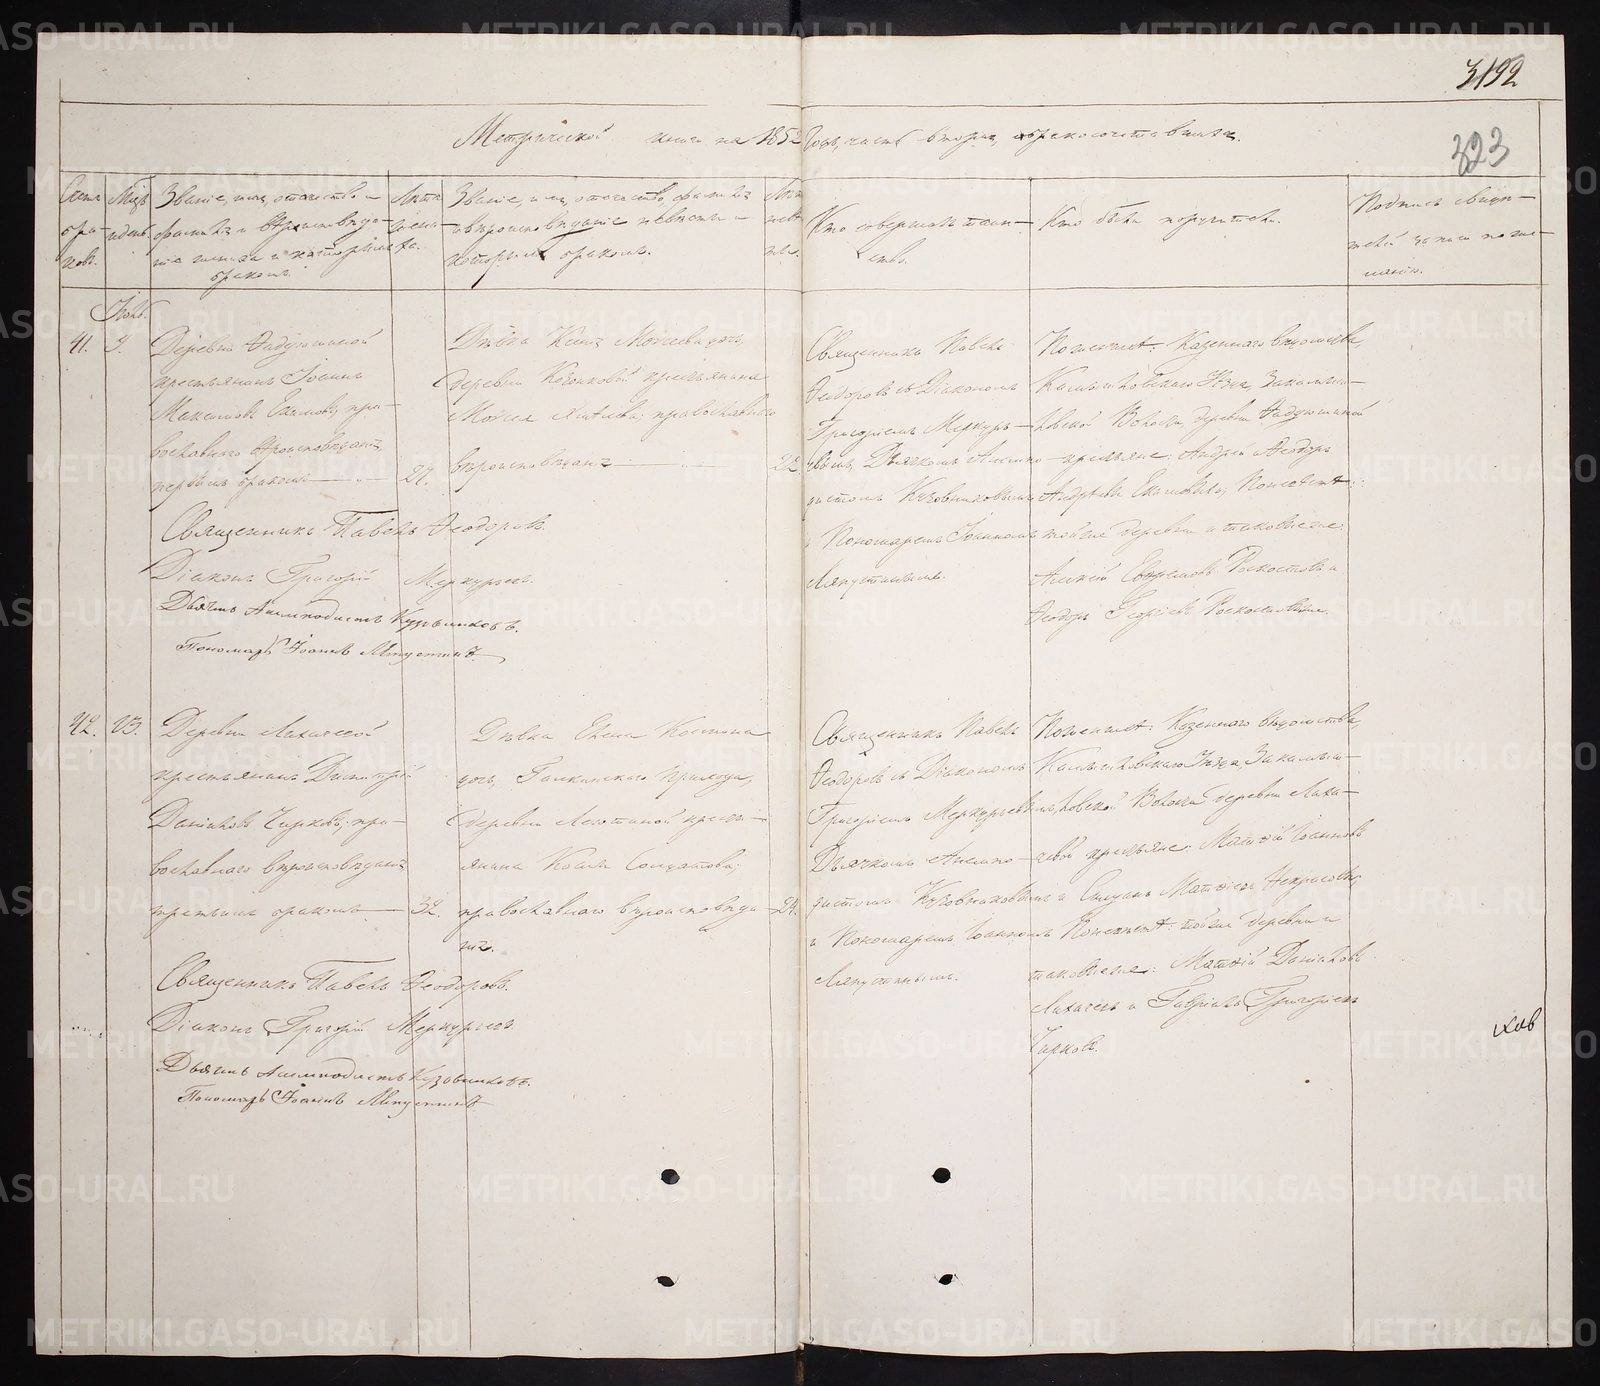 3192
323
Метрической книги на 1852 годъ, часть вторая, о бракосочетавшихся.
Счетъ бра-ковъ.
Мѣсяцъ и день.
Званіе, имя, отчество,
фамилія и вѣроисповѣда-
ніе жениха и которымъ
бракомъ.
Лѣта жениха.
Званіе, имя, отечество, фамилія
и вѣроисповѣданіе невѣсты и
которымъ бракомъ.
Лѣта невѣсты.
Кто совершалъ таин-
ство.
Кто были поручители.
Подпись свидѣ-
телей записи по же-
ланію.
Нояб.
41.
9.
Деревни
крестьянинъ Іоаннъ
Максимовъ Екимовъ, пра-
вославнаго вѣроисповѣданія,
первымъ бракомъ
27.
Дѣвка Моисеева дочь,
деревни крестьянина
Моисея православнаго
вѣроисповѣданія
22
Священникъ Павелъ
Ѳеодоровъ съ Діакономъ
Григоріемъ Меркурь-
евымъ, Дьячкомъ Анемпо-
дистомъ Кузовниковымъ
и Пономаремъ Іоанномъ
Ляпустинымъ.
По женихѣ: Казеннаго вѣдомства,
Камышловскаго Уѣзда, Закамыш-
ловской Волости, деревни
крестьяне: Андрей и Ѳеодоръ
Андреевы Екимовы; по невѣстѣ:
той же деревни и таковые же:
Алексѣй
Ѳеодоръ Георгіевъ
Священникъ Павелъ Ѳеодоровъ.
Діаконъ Григорій Меркурьевъ.
Дьячекъ Анемподистъ Кузовниковъ.
Пономарь Іоаннъ Ляпустинъ
42.
23.
Деревни Лихачевой
крестьянинъ Димитрій
Даніиловъ Чирковъ, пра-
вославнаго вѣроисповѣданія
третьимъ бракомъ
32.
Дѣвка Елена Космина
дочь, Галкинскаго прихода,
деревни кресть-
янина Космы Солдатова,
православнаго вѣроисповѣда-
нія.
24.
Священникъ Павелъ
Ѳеодоровъ съ Діакономъ
Григоріемъ Меркурьевымъ,
Дьячкомъ Анемпо-
дистомъ Кузовниковымъ
и Пономаремъ Іоанномъ
Ляпустинымъ.
По женихѣ: Казеннаго вѣдомства,
Камышловскаго Уѣзда, Закамыш-
ловской Волости деревни Лиха-
чевой крестьяне: Матѳій Іоанновъ
и Стефанъ Матѳіевъ Некрасовы,
По невѣстѣ: той же деревни и
таковые же: Матѳій Даніиловъ
Лихачевъ и Гавріилъ Григорьевъ
Чирковъ.
Священникъ Павелъ Ѳеодоровъ.
Діаконъ Григорій Меркурьевъ
Дьячекъ Анемподистъ Кузовниковъ.
Пономарь Іоаннъ Ляпустинъ
METRIKI.GASO-URAL.RU